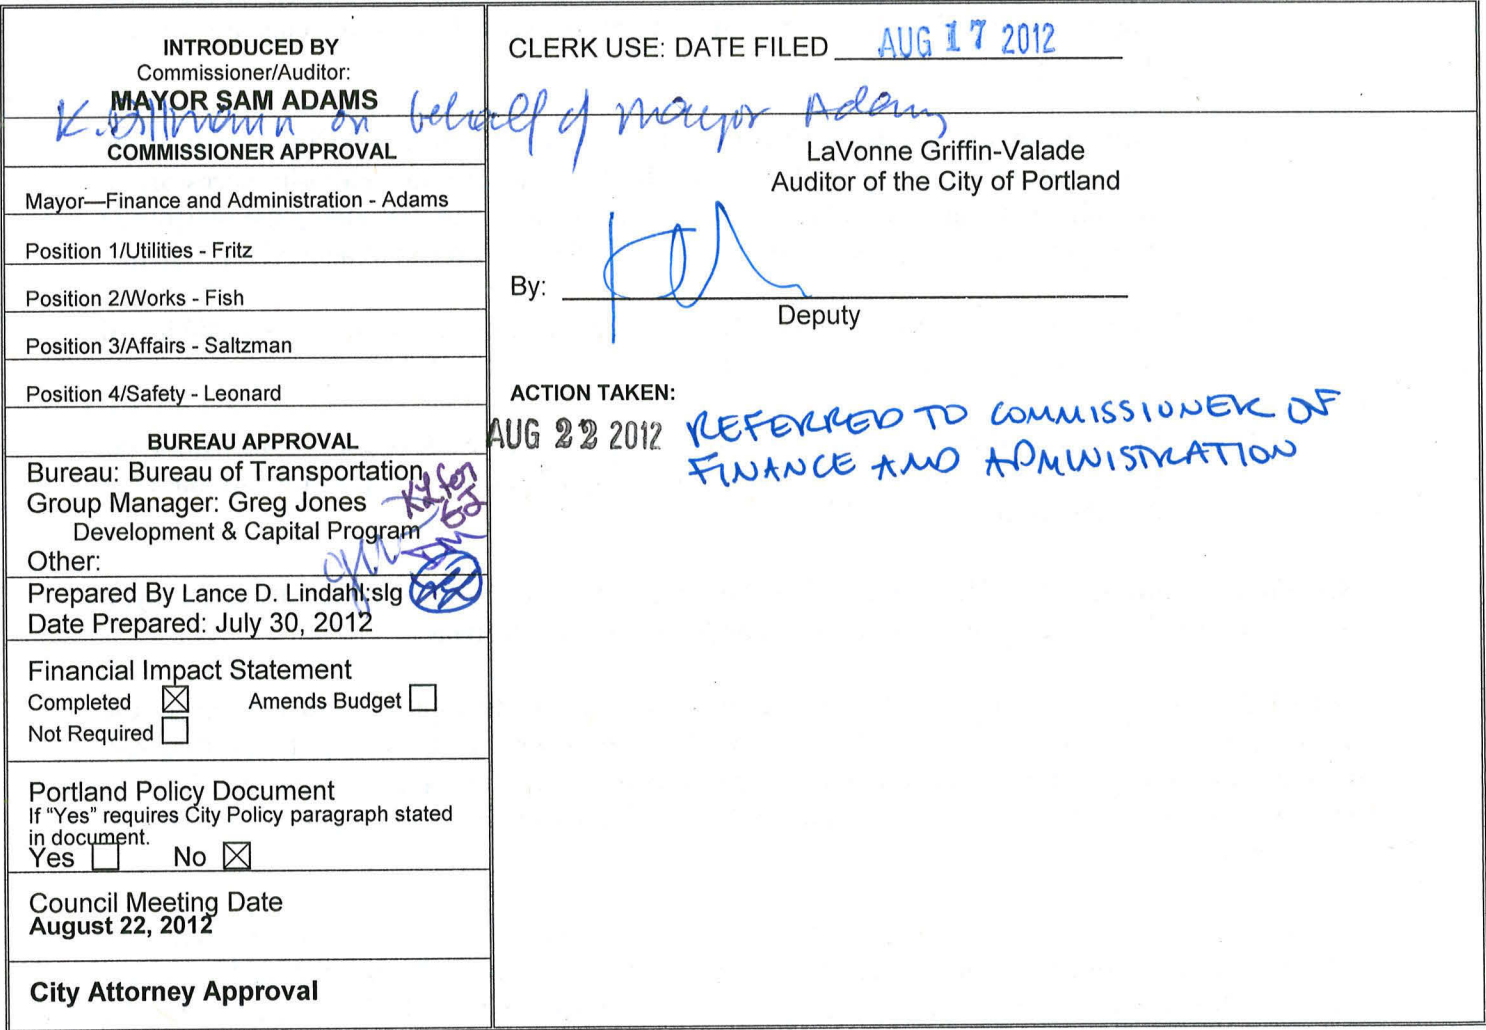 INTRODUCED BY
Commissioner/Auditor:
MAYOR SAM ADAMS
on behalf of Mayor Adams
COMMISSIONER APPROVAL
Mayor—Finance and Administration - Adams
Position 1/Utilities - Fritz
Position 2/Works - Fish
Position 3/Affairs - Saltzman
Position 4/Safety - Leonard
BUREAU APPROVAL
Bureau: Bureau of Transportation
Group Manager: Greg Jones
Development & Capital Program
Other:
Prepared By Lance D. Lindahl:slg
Date Prepared: July 30, 2012
Financial Impact Statement
Completed ☒ Amends Budget ☐
Not Required ☐
Portland Policy Document
If “Yes” requires City Policy paragraph stated
in document.
Yes ☐ No ☒
Council Meeting Date
August 22, 2012
City Attorney Approval
CLERK USE: DATE FILED AUG 17 2012
LaVonne Griffin-Valade
Auditor of the City of Portland
By:
Deputy
ACTION TAKEN:
AUG 22 2012 REFERRED TO COMMISSIONER OF
FINANCE AND ADMINISTRATION